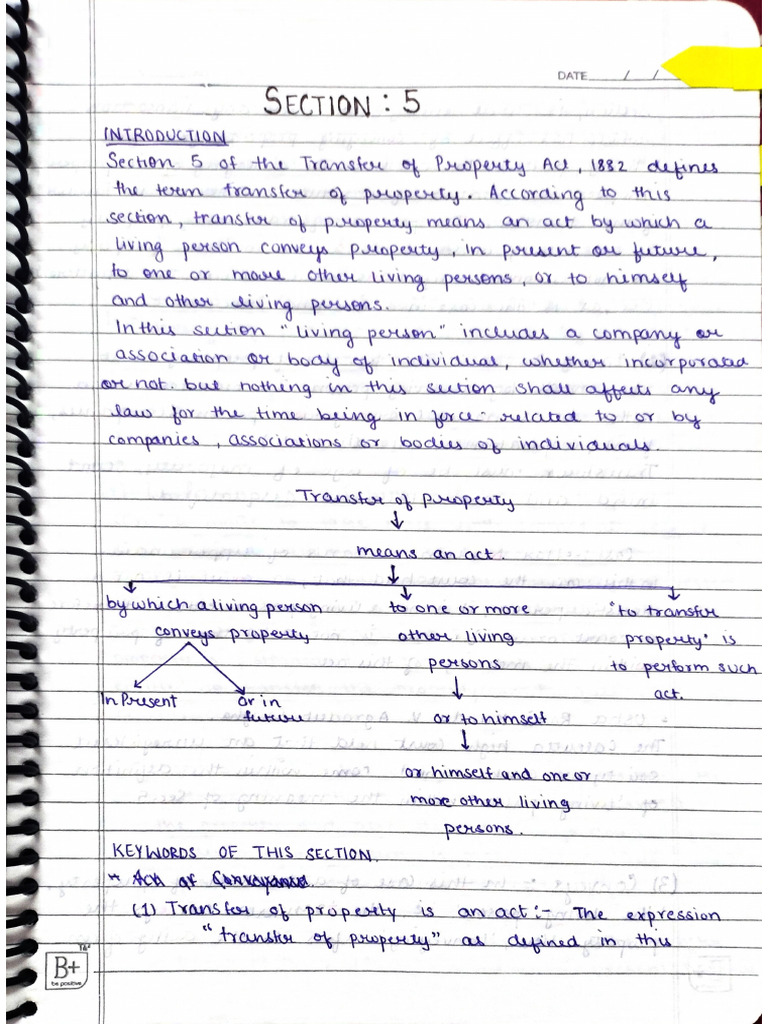 DATE / /
SECTION : 5
INTRODUCTION
Section 5 of the Transfer of Property Act, 1882 defines
the term transfer of property. According to this
section, transfer of property means an act by which a
living person conveys property, in present or future,
to one or more other living persons, or to himself
and other living persons.
In this section "living person" includes a company or
association or body of individual, whether incorporated
or not. but nothing in this section shall affects any
law for the time being in force related to or by
companies, associations or bodies of individuals.
Transfer of property
means an act.
by which a living person to one or more "to transfer
conveys property other living property" is
persons to perform such
In Present or in or to himself act.
future
or himself and one or
more other living
persons.
KEYWORDS OF THIS SECTION.
(1) Transfer of property is an act :- The expression
"transfer of property" as defined in this
B+
be positive